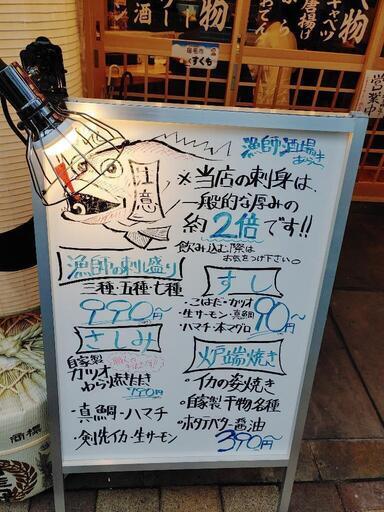 酒
物
唐揚げ
営業中
宿毛市
すくも
漁師酒場
注意
※当店の刺身は、
一般的な厚みの
約2倍です!!
飲み込む際は
お気をつけ下さい。
漁師の刺し盛り
三種・五種・七種
990円~
さしみ
自家製
カツオ
わら焼たたき
790円
・真鯛・ハマチ
・剣先イカ・生サーモン
すし
・こはだ・カツオ
・生サーモン・真鯛
・ハマチ・本マグロ
90円~
炉端焼き
・イカの姿焼き
・自家製干物各種
・ホタテバター醤油
390円~
商標